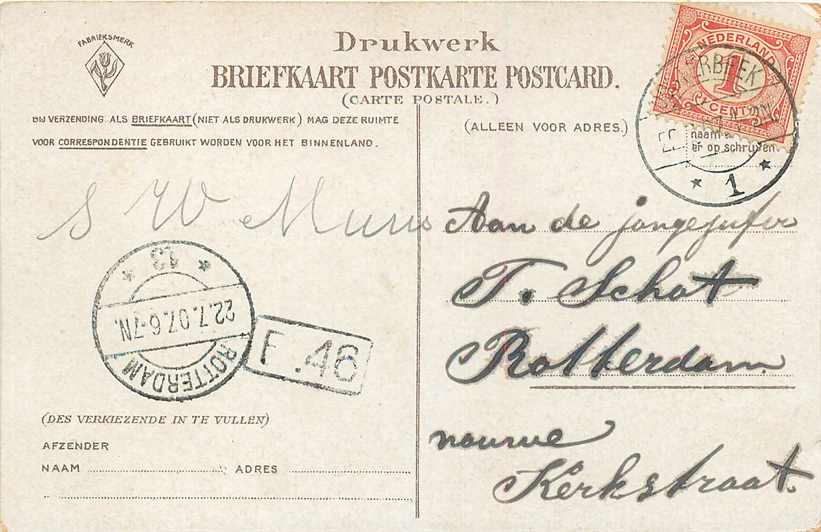 FABRIEKSMERK
Drukwerk
BRIEFKAART POSTKARTE POSTCARD.
(CARTE POSTALE.)
BIJ VERZENDING ALS BRIEFKAART (NIET ALS DRUKWERK) MAG DEZE RUIMTE
VOOR CORRESPONDENTIE GEBRUIKT WORDEN VOOR HET BINNENLAND.
(ALLEEN VOOR ADRES.)
NEDERLAND
1
CENT
naam
er op schrijven.
1
S W Muus
13
22.7.07.6-7N.
ROTTERDAM
F.46
Aan de jongejufer
T. Schot
Rotterdam
nouwe
Kerkstraat.
(DES VERKIEZENDE IN TE VULLEN)
AFZENDER
NAAM ADRES